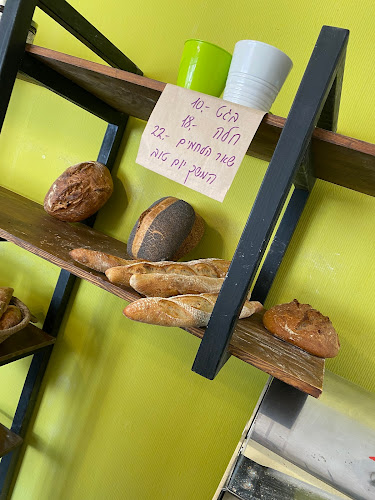 בגט -.10
חלה -.18
שאר הלחמים -.22
המשך יום טוב